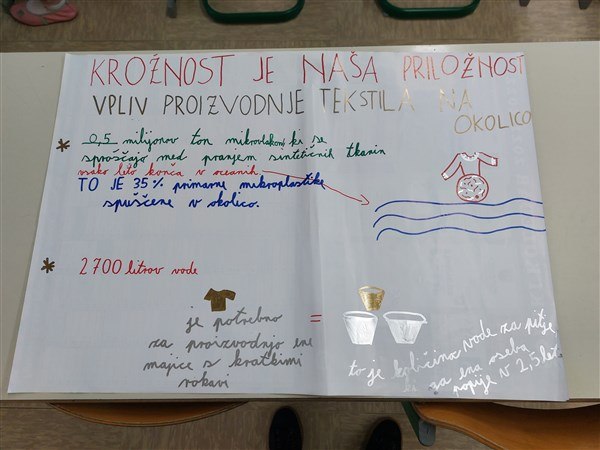 KROŽNOST JE NAŠA PRILOŽNOST
VPLIV PROIZVODNJE TEKSTILA NA
OKOLICO
* 0,5 milijonov ton mikrovlaken, ki se
sproščajo med pranjem sintetičnih tkanin
vsako leto konča v oceanih
TO JE 35% primarne mikroplastike
spuščene v okolico.
* 2700 litrov vode
je potrebno
za proizvodnjo ene
majice s kratkimi
rokavi
=
to je količina vode za pitje
ki za ena oseba
popije v 2,5 letih